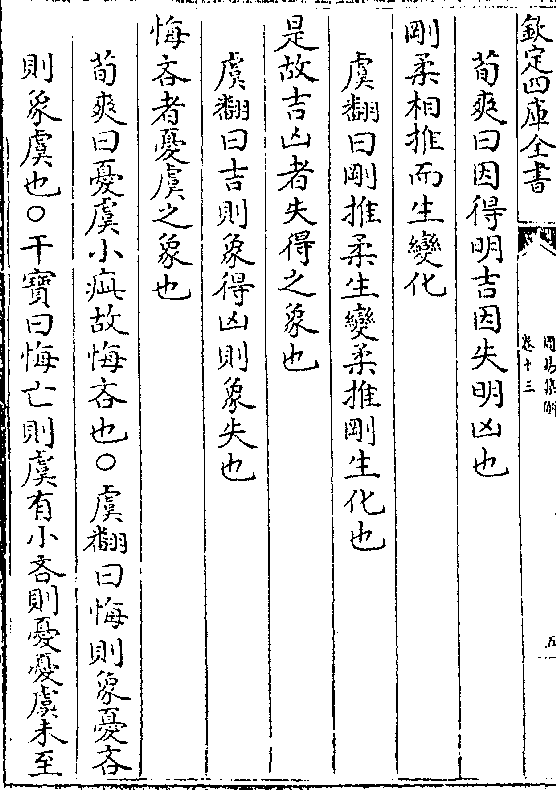 欽定四庫全書
周易集解
卷十三
五
荀爽曰因得明吉因失明凶也
剛柔相推而生變化
虞翻曰剛推柔生變柔推剛生化也
是故吉凶者失得之象也
虞翻曰吉則象得凶則象失也
悔吝者憂虞之象也
荀爽曰憂虞小疵故悔吝也○虞翻曰悔則象憂吝
則象虞也○干寶曰悔亡則虞有小吝則憂憂虞未至